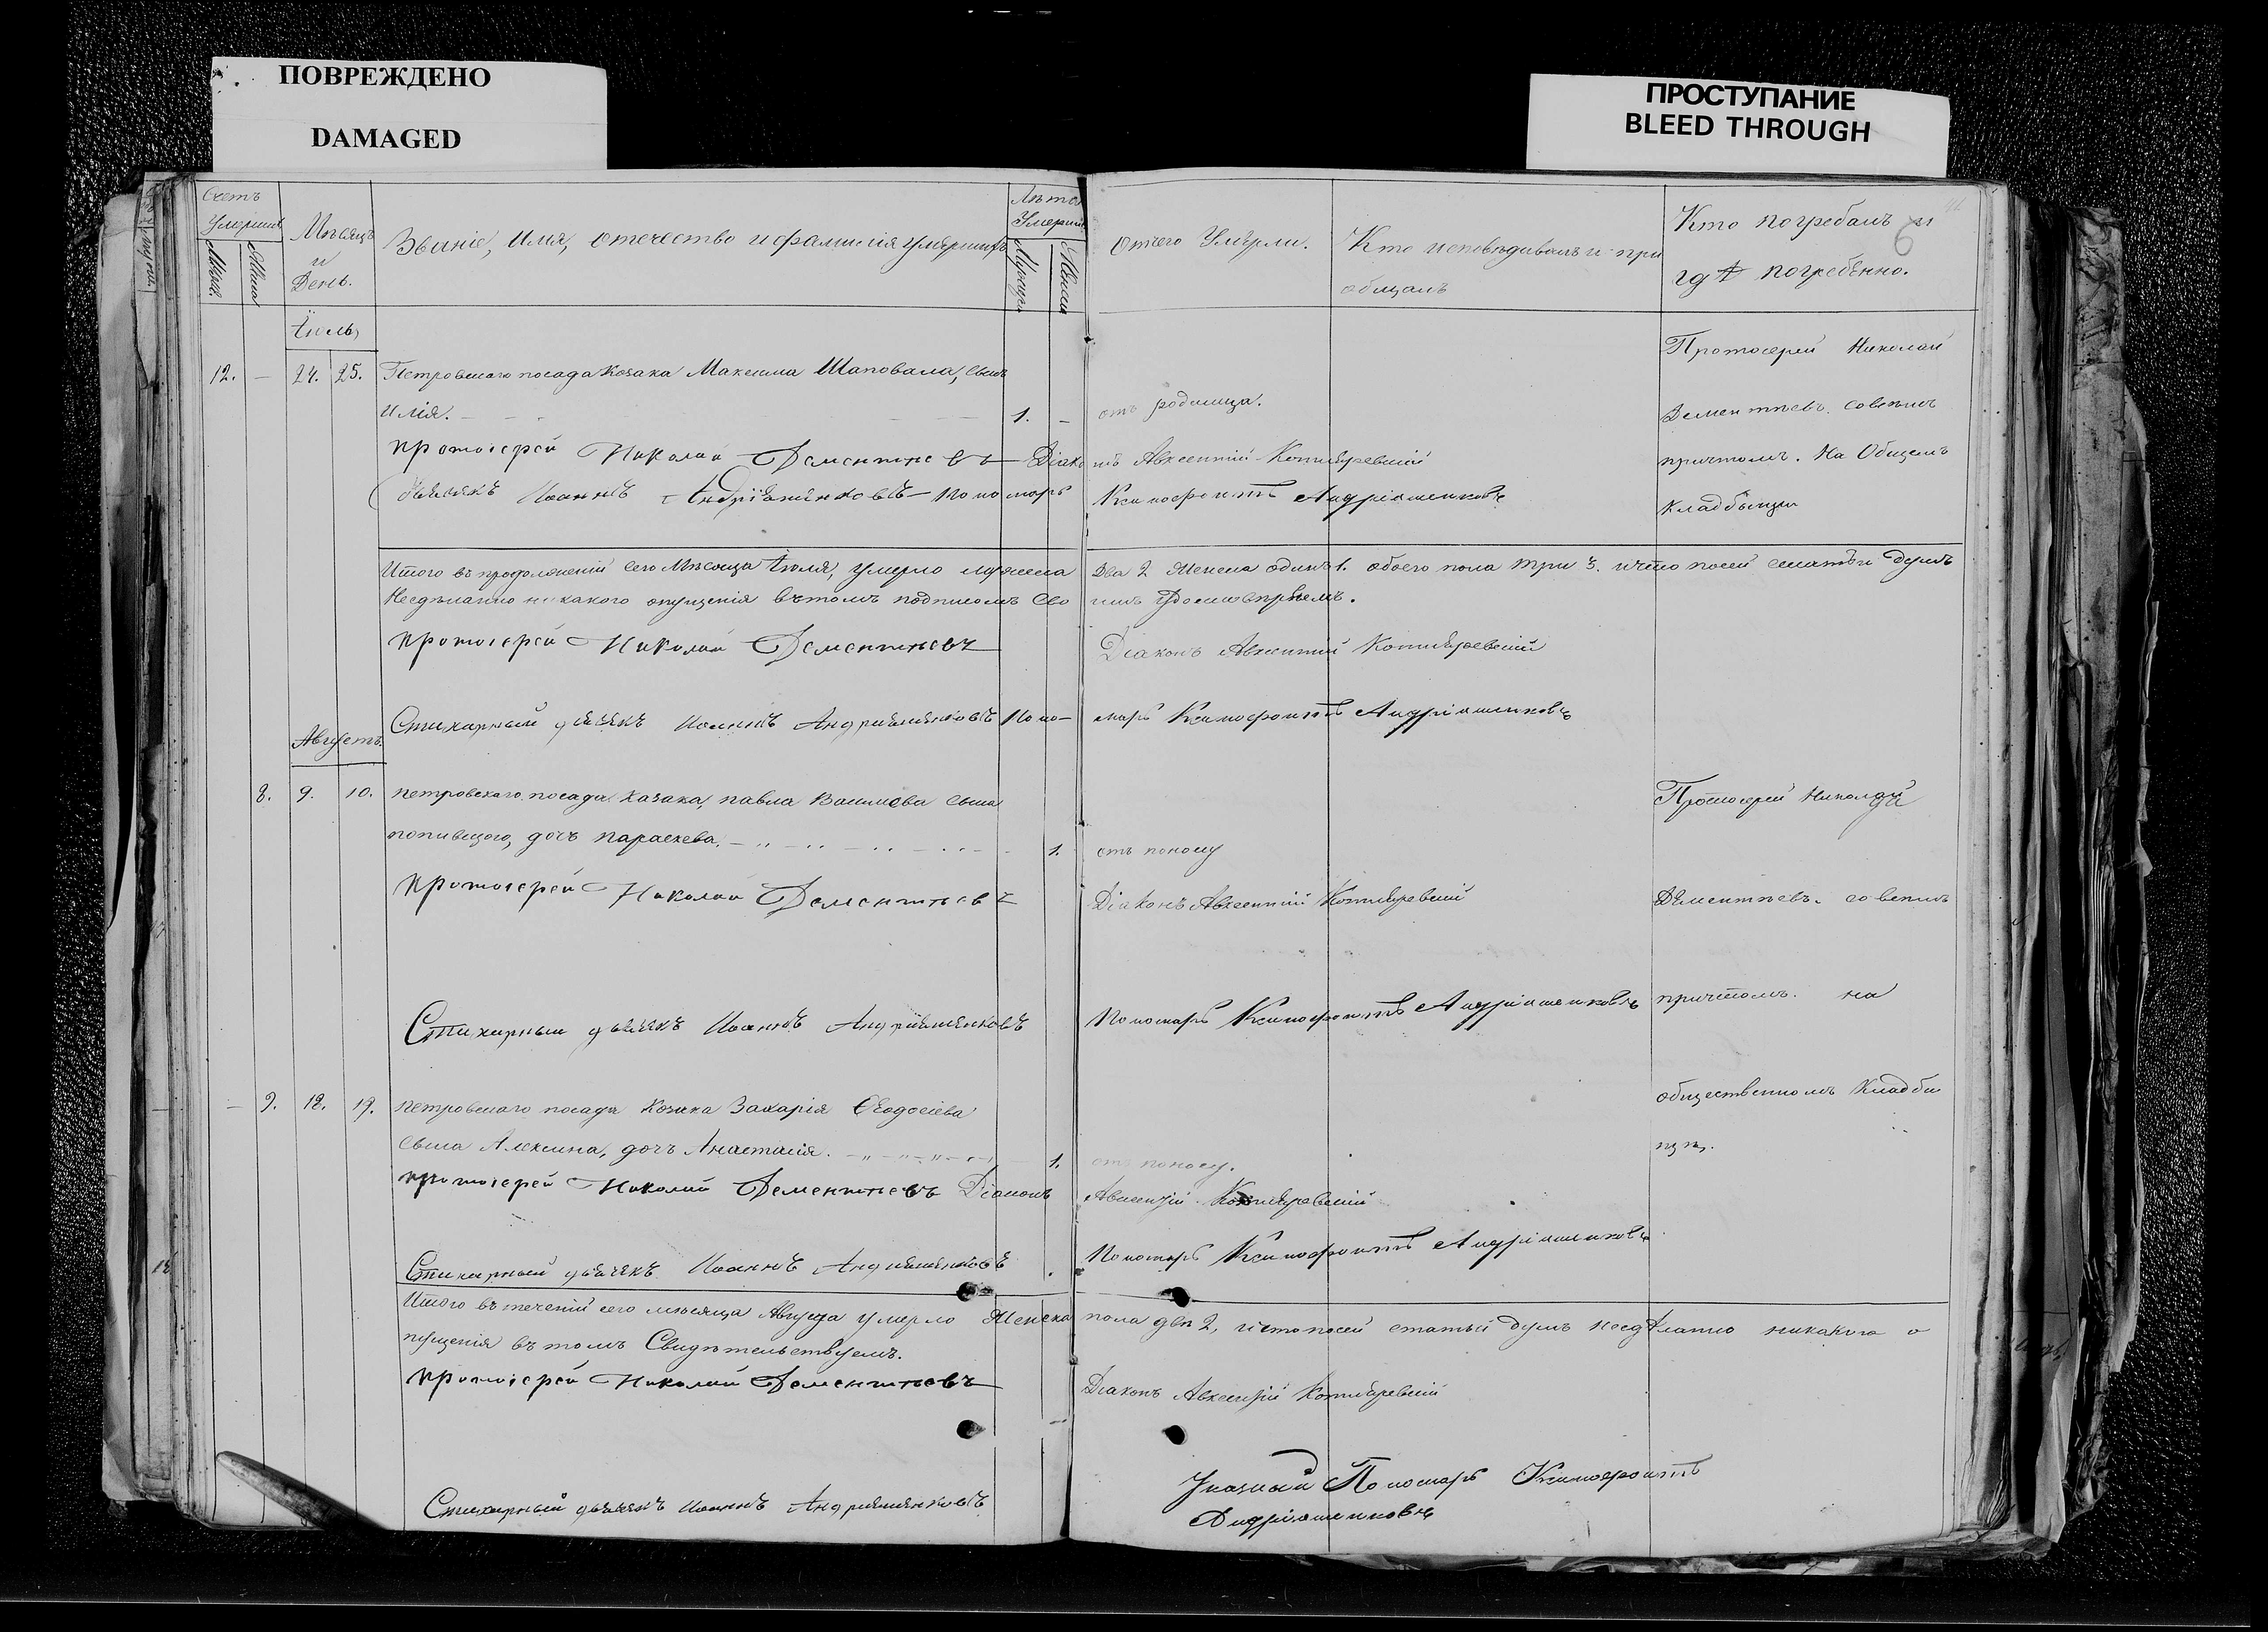 ПОВРЕЖДЕНО
DAMAGED
ПРОСТУПАНИЕ
BLEED THROUGH
Счетъ
Умерших
Мѣсяцъ
и
День.
Званіе, Имя, отечество и фамилія умершихъ
Лѣта
Умерших
Отчего Умерли.
Кто исповѣдывалъ и при
общалъ
Кто погребалъ и
гдѣ погребенно.
6
Іюль
12. — 24. 25. Петровскаго посада козака Максима Шаповала, сынъ
Илія. 1. — отъ родимца.
Протоіерей Николай
Дементьевъ. Совсѣмъ
причтомъ. На Общемъ
кладбищи
протоіерей Николай Дементьевъ Діаконъ Авксентій Котляревскій
дьячекъ Иоаннъ Андріяшенковъ — пономарь Ксинофонтъ Андріяшенковъ
Итого въ продолженіи сего Мѣсяца Іюля, умерло мужеска два 2 женска одинъ 1. обоего пола три 3. и что посей статьи думъ
Несдѣланно никакого опущенія вътомъ подписомъ сво
протоіерей Николай Дементьевъ
Діаконъ Авксентій Котляревскій
Стихарный дьячекъ Иоаннъ Андріяшенковъ Пономарь Ксинофонтъ Андріяшенковъ
Августъ.
8. 9. 10. петровскаго посада казака павла Василіова сына
попивщого, дочь параскева. 1. отъ поносу
Протоіерей Николай
Дементьевъ. совсѣмъ
причтомъ. на
общественномъ Кладби
щѣ.
протоіерей Николай Дементьевъ
Діаконъ Авксентій Котляревскій
Стихарный дьячекъ Иоаннъ Андріяшенковъ
Пономарь Ксинофонтъ Андріяшенковъ
— 9. 18. 19. петровскаго посада козака Захарія Ѳеодосіева
сына Алексина, дочь Анастасія. 1. отъ поносу.
протоіерей Николай Дементьевъ Діаконъ Авксентій Котляревскій
Стихарный дьячекъ Иоаннъ Андріяшенковъ
Пономарь Ксинофонтъ Андріяшенковъ
Итого въ теченіи сего мѣсяца Августа умерло Женска пола двѣ 2, и что посей статьи думъ несдѣланно никакого о
пущенія въ томъ Свидѣтельствуемъ.
протоіерей Николай Дементьевъ
Діаконъ Авксентій Котляревскій
Стихарный дьячекъ Иоаннъ Андріяшенковъ
Указный Пономарь Ксинофонтъ
Андріяшенковъ